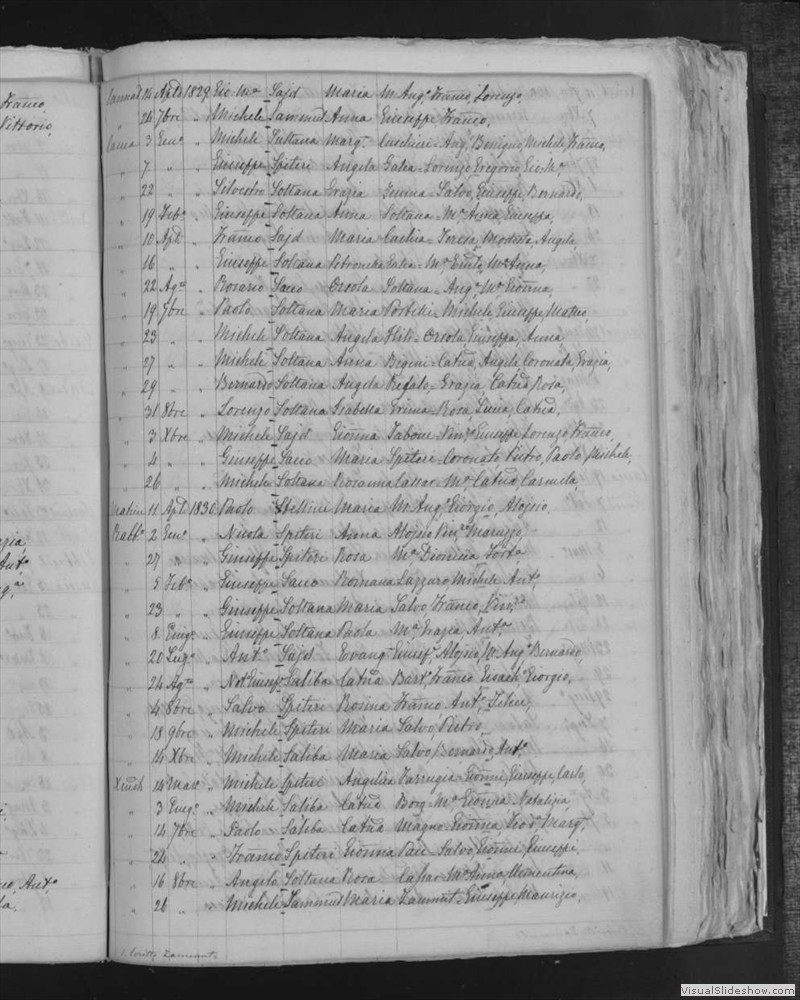 Franco,
Vittorio,
14 Apl 1829 Gio Ma Sajd Maria Ma Anga Franco, Lorenzo,
" 26 7bre " Michele Sammut Anna Giuseppe Franco,
3 Genº " Michele Sultana Marg. Cuschieri Ang, Benigno, Michele, Franco,
" 7 " " Giuseppe Spiteri Angela Galea Lorenzo, Gregorio, Gio Ma,
" 22 " " Silvestro Soltana Grazia Salvo, Giuseppe, Bernardo,
" 19 Febº " Giuseppe Soltana Anna Soltana Ma Anna, Giuseppa,
" 10 Apl " Franco Sajd Maria Cachia Teresa, Modesta, Angela,
" 16 " " Giuseppe Soltana Petronilla Galea Ma Anna,
" 22 Agto " Rosario Sacco Orsola Soltana Anga, Ma Gionna,
" 19 7bre " Paolo Soltana Maria Portelli Michele, Giuseppe, Matteo,
" 23 " " Michele Soltana Angela Orsola, Giuseppa, Anna
" 27 " " Michele Soltana Anna Bigeni Catna, Angela, Coronata, Grazia,
" 29 " " Bernardo Soltana Angela Refalo Grazia, Catna, Rosa,
" 31 8bre " Lorenzo Soltana Isabella Grima Rosa, Lucia, Catna,
" 3 Xbre " Michele Sajd Gionna Tabone Vinzo, Giuseppe, Lorenzo, Franco,
" 4 " " Giuseppe Sacco Maria Spiteri Coronato, Pietro, Paolo, Michele,
" 26 " " Michele Soltana Rosanna Cassar Ma Catna, Carmela,
11 Apl 1830 Paolo Stellini Maria Ma Anga, Giorgio, Aloisio,
Rabto 2 Genº " Nicola Spiteri Anna Aloisio, Vinzo,
" 27 " " Giuseppe Spiteri Rosa Ma
" 5 Febº " Giuseppe Sacco Romana Lazzaro, Michele, Anto,
" 23 " " Giuseppe Soltana Maria Salvo, Franco, Vinzo
" 8 Giugº " Giuseppe Soltana Paola Ma Grazia, Anta,
" 20 Lugº " Antº Sajd Evang. Giusepe, Aloisa, Ma Anga, Bernardo,
" 24 Agto " Not Giuseppe Saliba Catna Barto, Franco, Giorgio,
" 4 8bre " Salvo Spiteri Rosina Franco, Anto, Felice,
" 18 9bre " Michele Spiteri Maria Salvo, Pietro,
" 14 Xbre " Michele Saliba Maria Salvo, Bernardo, Anto,
Xeuch 14 Marz " Michele Spiteri Angelica Farrugia Gionni, Giuseppe, Carlo,
" 3 Giugº " Michele Saliba Catna Borg Ma Gionna, Natalizia,
" 14 7bre " Paolo Saliba Catna Magro Gionna, Marg,
" 24 " " Franco Spiteri Gionna Pace Salvo, Gionni, Giuseppe,
" 16 8bre " Angelo Soltana Rosa Cassar Ma Anna, Clementina,
" 26 " " Michele Sammut Maria Zammut Giuseppe, Maurizio,
Zammut
VisualSlideshow.com